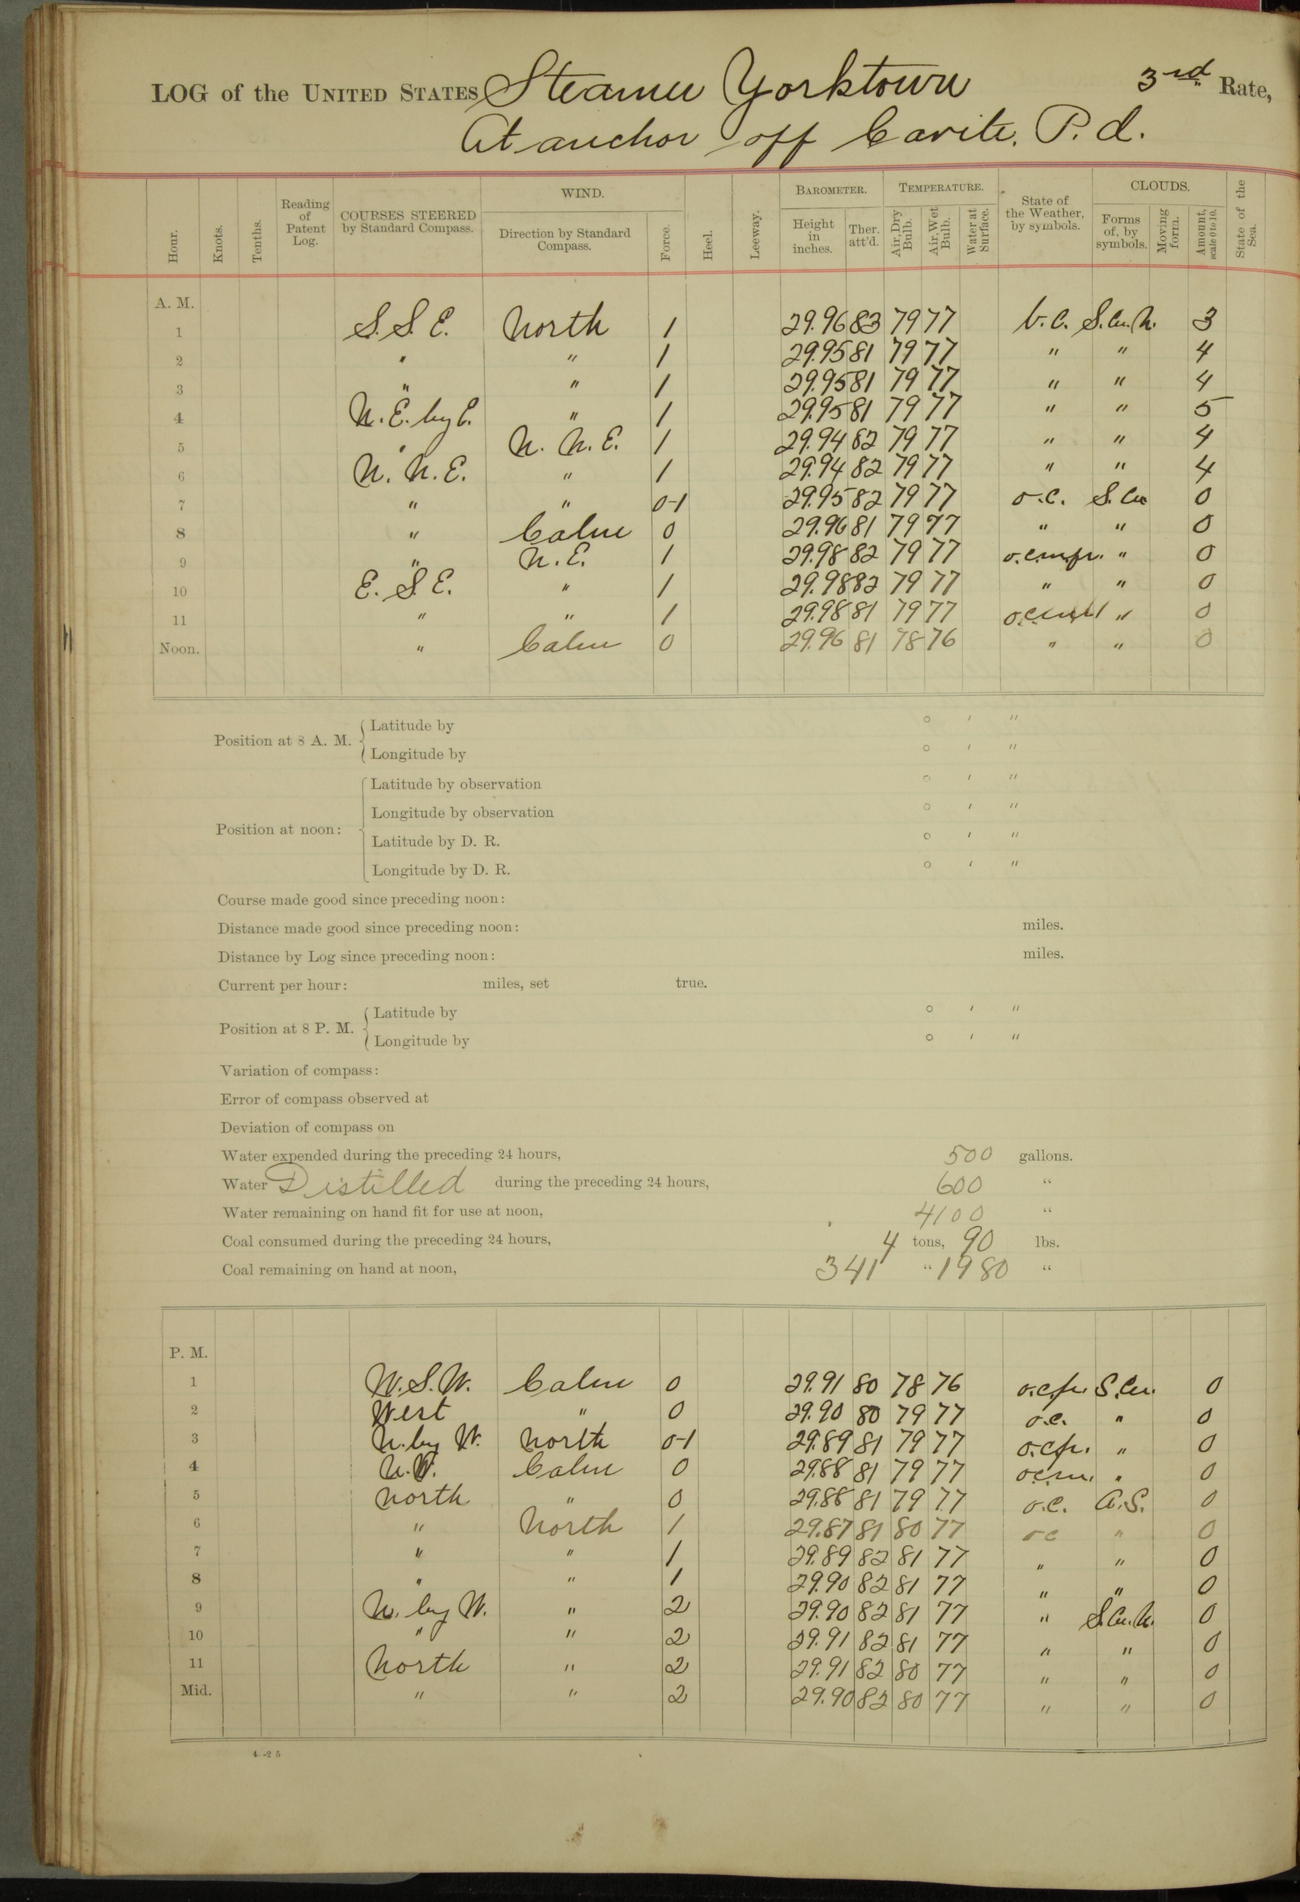 LOG of the UNITED STATES Steamer Yorktown 3rd Rate,
At anchor off Cavite, P. I.
Hour. Knots. Tenths. Reading of Patent Log. COURSES STEERED by Standard Compass. WIND. Direction by Standard Compass. Force. Heel. Leeway. BAROMETER. Height in inches. Ther. att'd. TEMPERATURE. Air, Dry Bulb. Air, Wet Bulb. Water at Surface. State of the Weather, by symbols. CLOUDS. Forms of, by symbols. Moving form. Amount, scale 0 to 10. State of the Sea.
A. M.
1 S. S. E. North 1 29.96 83 79 77 b.c. S.Cu.N. 3
2 " " 1 29.95 81 79 77 " " 4
3 " " 1 29.95 81 79 77 " " 4
4 N. E. by E. " 1 29.95 81 79 77 " " 5
5 " N. N. E. 1 29.94 82 79 77 " " 4
6 N. N. E. " 1 29.94 82 79 77 " " 4
7 " " 0-1 29.95 82 79 77 o.c. S.Cu 0
8 " Calm 0 29.96 81 79 77 " " 0
9 " N. E. 1 29.98 82 79 77 o.c.m.p.r. " 0
10 E. S. E. " 1 29.98 82 79 77 " " 0
11 " " 1 29.98 81 79 77 " 0
Noon. " Calm 0 29.96 81 78 76 " " 0
Position at 8 A. M. Latitude by ° ′ ″
Longitude by ° ′ ″
Position at noon: Latitude by observation ° ′ ″
Longitude by observation ° ′ ″
Latitude by D. R. ° ′ ″
Longitude by D. R. ° ′ ″
Course made good since preceding noon:
Distance made good since preceding noon: miles.
Distance by Log since preceding noon: miles.
Current per hour: miles, set true.
Position at 8 P. M. Latitude by ° ′ ″
Longitude by ° ′ ″
Variation of compass:
Error of compass observed at
Deviation of compass on
Water expended during the preceding 24 hours, 500 gallons.
Water Distilled during the preceding 24 hours, 600 "
Water remaining on hand fit for use at noon, 4100 "
Coal consumed during the preceding 24 hours, 4 tons, 90 lbs.
Coal remaining on hand at noon, 341 " 1980 "
P. M.
1 W. S. W. Calm 0 29.91 80 78 76 o.c.p.r. S.Cu. 0
2 West " 0 29.90 80 79 77 o.c. " 0
3 N. by W. North 0-1 29.89 81 79 77 o.c.p.r. " 0
4 N.W. Calm 0 29.88 81 79 77 o.c.m. " 0
5 North " 0 29.86 81 79 77 o.c. A.S. 0
6 " North 1 29.87 81 80 77 o c " 0
7 " " 1 29.89 82 81 77 " " 0
8 " " 1 29.90 82 81 77 " " 0
9 N. by W. " 2 29.90 82 81 77 " S.Cu.N. 0
10 " " 2 29.91 82 81 77 " " 0
11 North " 2 29.91 82 80 77 " " 0
Mid. " " 2 29.90 82 80 77 " " 0
4-25